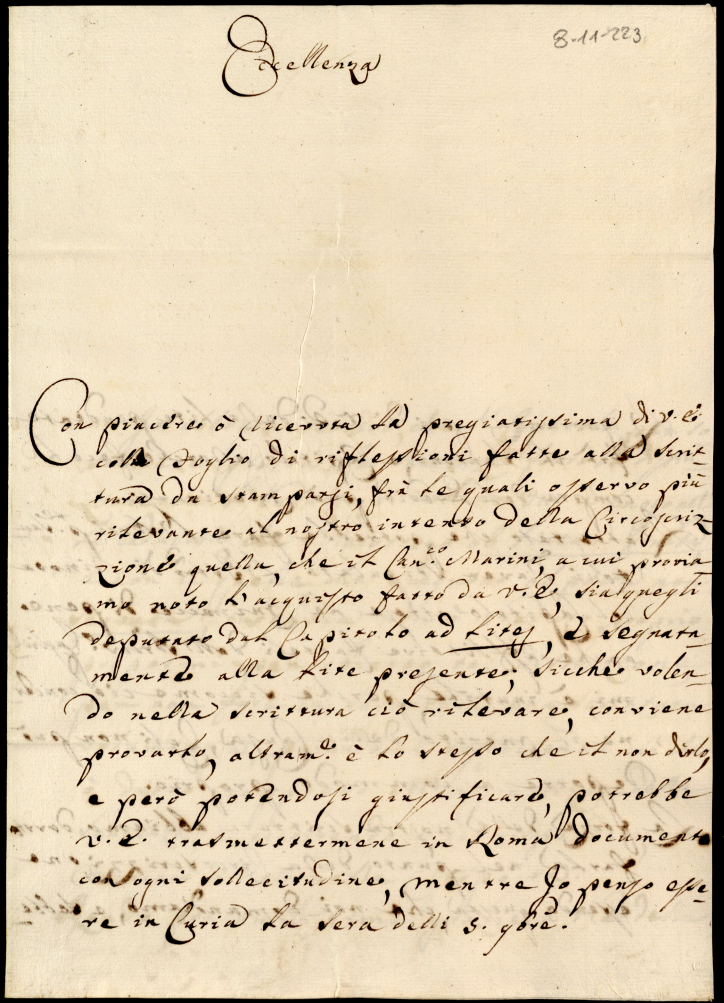 8-11-223
Eccellenza
Con piacere ò ricevuta la pregiatissima di V. E.
col Foglio di riflessioni fatte alla Scrit-
tura da stamparsi, frà le quali osservo più
rilevante al nostro intento della Circoscriz-
zione quella, che il Can.co Marini, a cui provia
mo noto l'acquisto fatto da V. E., sia quegli
deputato dal Capitolo ad lites, e segnata-
mente alla lite presente; sicche volen-
do nella scrittura ciò rilevare, conviene
provarlo, altram.e è lo stesso che il non dirlo,
e però potendosi giustificare, potrebbe
V. E. trasmettermene in Roma documento
con ogni sollecitudine, mentre Jo penso esse-
re in Curia la sera delli 5. 9bre.